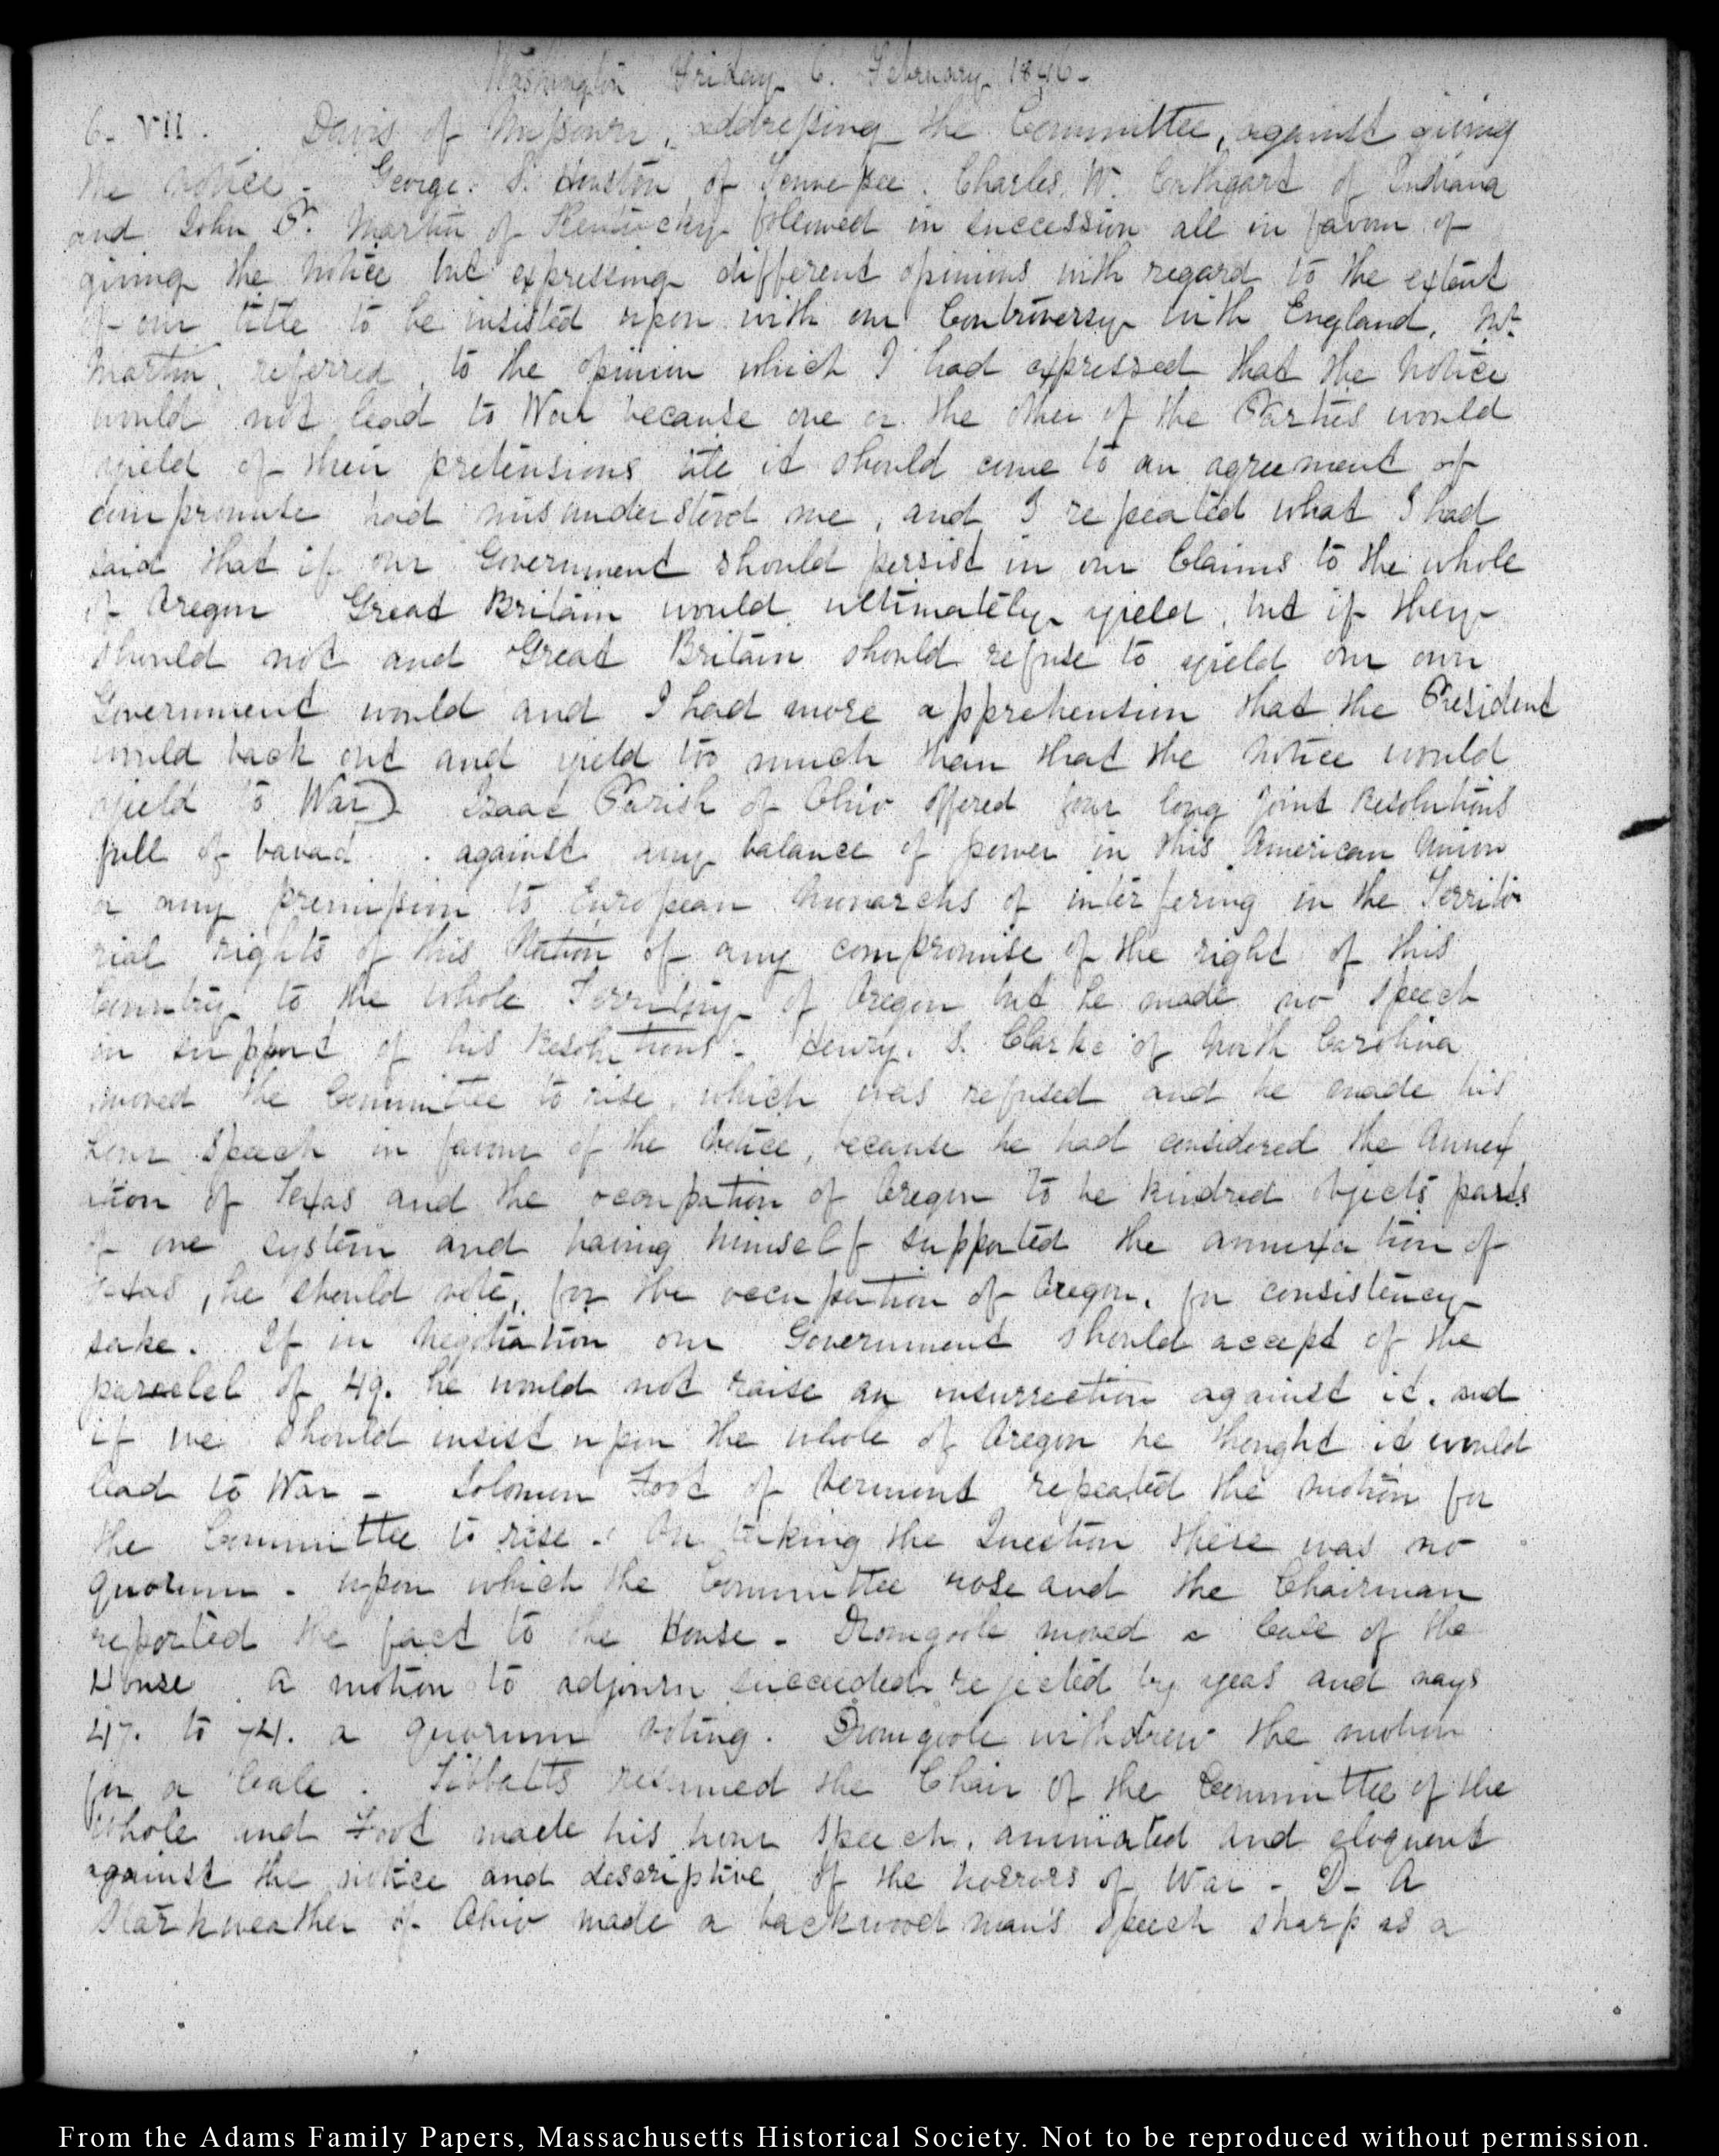 Washington Friday 6. February 1846-
6- VII. Davis of Missouri, addressing the Committee, against giving
the notice - George. S. Houston of Tennessee. Charles. W. Cathgart of Indiana
and John P. Martin of Kentucky followed in succession all in favour of
giving the Notice but expressing different opinions with regard to the extent
of our title to be insisted upon with our Controversy with England, Mr.
Martin, referred, to the opinion which I had expressed that the Notice
would not lead to War because one or the other of the Parties would
yield of their pretensions it should come to an agreement of
compromise had misunderstood me, and I repeated what I had
said that if our Government should persist in our Claims to the whole
of Oregon Great Britain would ultimately yield, but if they
should not and Great Britain should refuse to yield our own
Government would and I had more apprehension that the President
would back out and yield too much than that the Notice would
yield to War) Isaac Parish of Ohio offered four long joint Resolutions
full of . against any balance of power in this American Union
or any premission to European Monarchs of interfering in the Territo
rial rights of this Nation of any compromise of the right of this
Country to the whole Territory of Oregon but he made no speech
in support of his Resolutions - Henry. S. Clarke of North Carolina
moved the Committee to rise, which was refused and he made his
hour speech in favour of the Notice, because he had considered the Annex
ation of Texas and the occupation of Oregon to be kindred objects parts
of one system and having himself supported the annexation of
Texas, he should vote, for the occupation of Oregon, for consistency
sake. If in Negotiation our Government should accept of the
paralel of 49. he would not raise an insurrection against it. and
if we should insist upon the whole of Oregon he thought it would
lead to War - Solomon Foot of Vermont repeated the motion for
the Committee to rise. On taking the Question there was no
quorum - upon which the Committee rose and the Chairman
reported the fact to the House - Dromgoole moved a Call of the
House. A motion to adjourn succeeded rejected by yeas and nays
47. to 74. a quorum voting. Dromgoole withdrew the motion
for a Call. Tibbatts resumed the Chair of the Committee of the
Whole and Foot made his hour speech, animated and eloquent
against the notice and descriptive of the horrors of War - D- A
Starkweather of Ohio made a backwood man's speech sharp as a
From the Adams Family Papers, Massachusetts Historical Society. Not to be reproduced without permission.